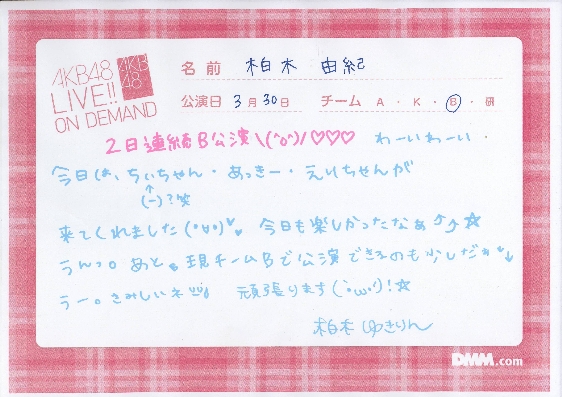 AKB48
LIVE!!
ON DEMAND
AKB
48
名前 柏木 由紀
公演日 3月30日 チーム A・K・B・研
2日連続B公演\(^o^)/♡♡♡ わーいわーい・
今日は、ちぃちゃん・あっきー・えりちゃんが
↑
(-)?笑
来てくれました(°∀°) 今日も楽しかったなぁ⤴⤴☆
うんっ。あと、現チームBで公演できるのも少しだぁ↓
うー。さみしいネ 頑張ります(`・ω・´)!☆
柏木ゆきりん
DMM.com